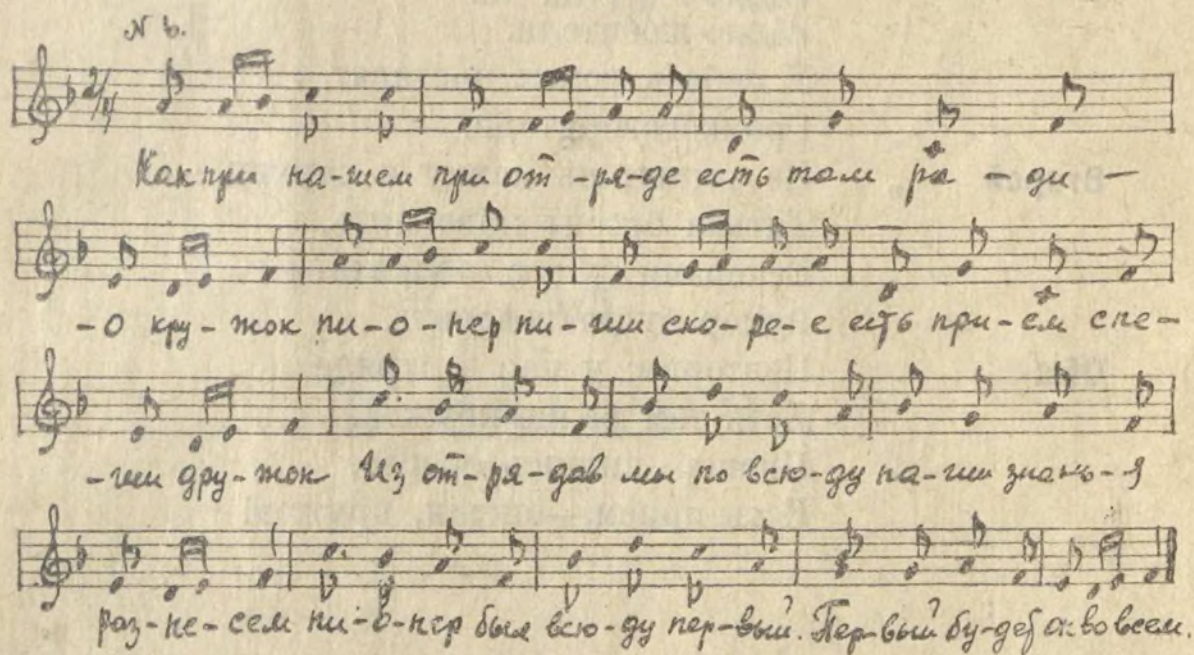 № 6.
2/4
Как при на-шем при от-ря-де есть там ра-ди-
-о кру-жок пи-о-нер пи-ши ско-ре-е есть при-ем спе-
-ши дру-жок Из от-ря-дав мы по всю-ду на-ши знань-я
раз-не-сем пи-о-нер был всю-ду пер-вый. Пер-вый бу-дет во всем.